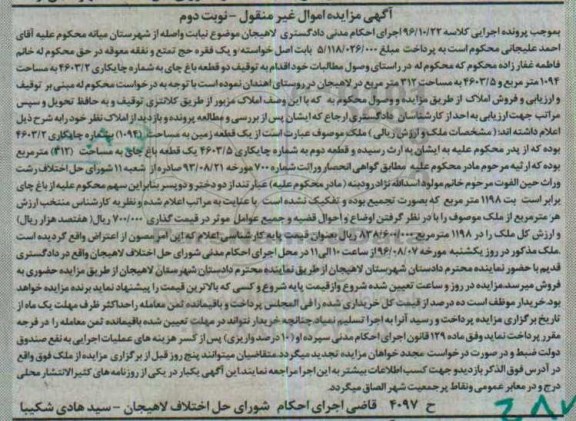 آگهی مزایده اموال غیر منقول - نوبت دوم
بموجب پرونده اجرایی کلاسه ۹۶/۱۰/۲۲ اجرای احکام مدنی دادگستری لاهیجان موضوع نیابت واصله از شهرستان میانه محکوم علیه آقای
احمد علیجانی محکوم است به پرداخت مبلغ ۵/۱۱۸/۰۲۶/۰۰۰ بابت اصل خواسته و یک فقره حج تمتع و نفقه معوقه در حق محکوم له خانم
فاطمه غفار زاده محکوم که محکوم له در راستای وصول مطالبات خود اقدام به توقیف دو قطعه باغ چای به شماره چایکاری ۴۶۰۳/۲ به مساحت
۱۰۹۴ متر مربع و ۴۶۰۳/۵ به مساحت ۳۱۲ متر مربع در لاهیجان در روستای اهندان نموده است با توجه به درخواست محکوم له مبنی بر توقیف
و ارزیابی و فروش املاک از طریق مزایده و وصول محکوم به که با این وصف املاک مزبور از طریق کلانتری توقیف و به حافظ تحویل و سپس
مراتب جهت ارزیابی به احد از کارشناسان دادگستری ارجاع که ایشان پس از بررسی و مطالعه پرونده و بازدید از املاک نظر خود را به شرح ذیل
اعلام داشته اند: (مشخصات ملک و ارزش ریالی) ملک موصوف عبارت است از یک قطعه زمین به مساحت (۱۰۹۴) شماره چایکاری ۴۶۰۳/۲
بوده که از پدر محکوم علیه به ایشان به ارث رسیده و قطعه دوم به شماره چایکاری ۴۶۰۳/۵ یک قطعه باغ چای به مساحت (۳۱۲) متر مربع
بوده که ارثیه مرحوم مادر محکوم علیه مطابق گواهی انحصار وراثت شماره ۷۰۰ مورخه ۹۳/۰۸/۲۱ صادره از شعبه ۱۱ شورای حل اختلاف رشت
وراث حین الفوت مرحوم خانم مولود اسدالله نژاد رودبنه (مادر محکوم علیه) عبارتند از دو دختر و دو پسر بنابراین سهم محکوم علیه از باغ چای
برابر است بت ۱۱۹۸ متر مربع که بصورت تجمیع بوده و تفکیک نشده است. با عنایت به مراتب اعلام شده و نظریه کارشناس منتخب ارزش
هر متر مربع از ملک موصوف را با در نظر گرفتن اوضاع و احوال قضیه و جمیع عوامل موثر در قیمت گذاری ۷۰۰/۰۰۰ ریال (هفتصد هزار ریال)
و ارزش کل ملک را در ۱۱۹۸ متر مربع ۸۳۸/۶۰۰/۰۰۰ ریال بعنوان قیمت پایه کارشناسی اعلام که این امر مصون از اعتراض واقع گردیده است
.ملک مذکور در روز یکشنبه مورخه ۹۶/۰۸/۰۷ از ساعت ۱۰ الی ۱۱ در محل اجرای احکام مدنی شورای حل اختلاف لاهیجان واقع در دادگستری
قدیم با حضور نماینده محترم دادستان شهرستان لاهیجان از طریق نماینده محترم دادستان شهرستان لاهیجان از طریق مزایده حضوری به
فروش میرسد مزایده در روز و ساعت تعیین شده شروع و از قیمت پایه شروع و کسی که بالاترین قیمت را پیشنهاد نماید برنده مزایده خواهد
بود. خریدار موظف است ده درصد از قیمت کل خریداری شده را فی المجلس پرداخت و باقیمانده ثمن معامله را حداکثر ظرف مهلت یک ماه از
تاریخ برگزاری مزایده پرداخت و رسید آن را به اجرا تسلیم نماید چنانچه خریدار نتواند در مهلت تعیین شده باقیمانده ثمن معامله را در فرجه
مقرر پرداخت نماید وفق ماده ۱۲۹ قانون اجرای احکام مدنی سپرده او (۱۰ درصد واریزی) پس از کسر هزینه های عملیات اجرایی به نفع صندوق
دولت ضبط و در صورت درخواست مجدد خواهان مزایده تجدید میگردد. متقاضیان میتوانند پنج روز قبل از برگزاری مزایده از ملک فوق واقع
در آدرس فوق الذکر بازدید و جهت کسب اطلاعات بیشتر به این اجرا مراجعه نمایند. این آگهی یکبار در یکی از روزنامه های کثیرالانتشار محلی
درج و در معابر عمومی و نقاط پر جمعیت شهر الصاق میگردد.
ح ۴۰۹۷ قاضی اجرای احکام شورای حل اختلاف لاهیجان - سید هادی شکیبا